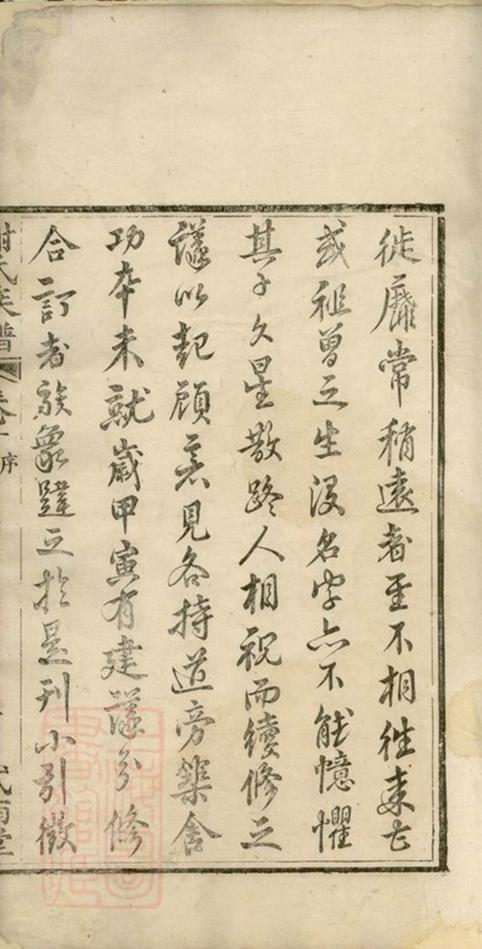 徙靡常稍遠者至不相往来亡
或祖曾之生沒名字亦不能憶懼
其子久星散路人相視而續修之
議以起顧意見各持道旁築舍
功卒未就歲甲寅有建議分修
合訂者族衆韙之於是刊小引徵
謝氏族譜
卷一
序